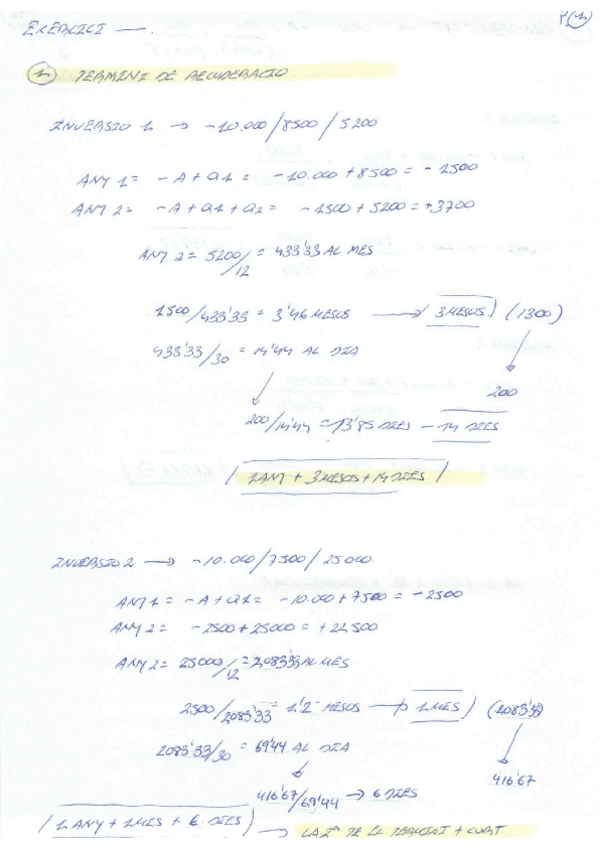 P(1)
EXERCICI —.
1 TERMINI DE RECUPERACIO
INVERSIO 1 → -10.000/8500/5200
ANY 1= -A+Q1= -10.000+8500=-1500
ANY 2= -A+Q1+Q2= -1500+5200=+3700
ANY 2= 5200/12=433'33 AL MES
1500/433'33=3'46 MESOS → 3 MESOS (1300)
433'33/30=14'44 AL DIA
200
200/14'44=13'85 DIES - 14 DIES
1 ANY + 3 MESOS + 14 DIES
INVERSIO 2 → -10.000/7500/25000
ANY 1= -A+Q1= -10.000+7500=-2500
ANY 2= -2500+25000=+22500
ANY 2= 25000/12=2083'33 AL MES
2500/2083'33=1'2 MESOS → 1 MES (2083'33)
2083'33/30=69'44 AL DIA
416'67
416'67/69'44 → 6 DIES
1 ANY + 1 MES + 6 DIES → LA 2ª TE EL TERMINI + CURT.